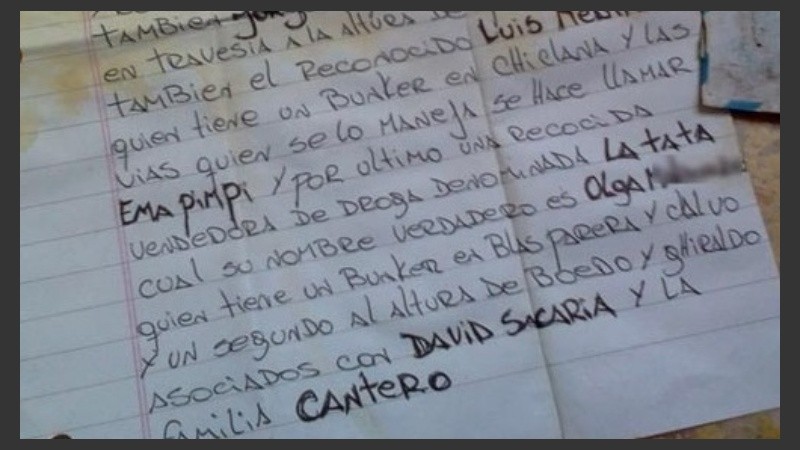 tAMBien
en travesia A la Altura de
tAMBien el Reconocido Luis
quien tiene un Bunker en Chiclana y las
vias quien se lo Maneja se Hace llamar
Ema pimpi y por ultimo una Recocida
vendedora de Droga Denominada La tata
cual su nombre verdadero es Olga
quien tiene un Bunker en Blas parera y calvo
y un segundo al Altura de Boedo y ghiraldo
Asociados con David Sacaria y la
familia Cantero